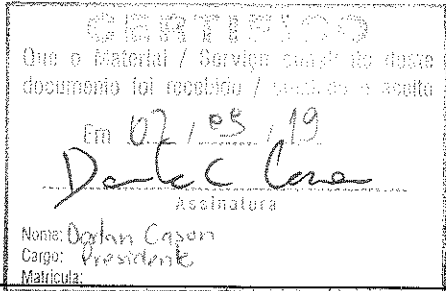 CERTIFICO
Que o Material / Serviço constante deste
documento foi recebido / e aceito
Em 02 / 09 / 19
Assinatura
Nome: Dorlan Cason
Cargo: Presidente
Matricula: